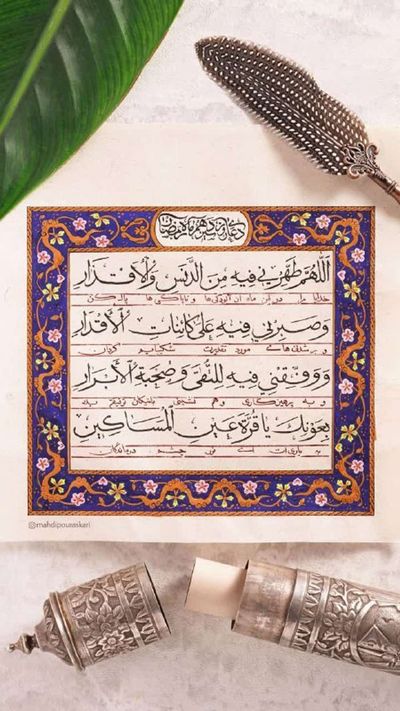 دعای روز سیزدهم ماه رمضان
اَللّهُمَّ طَهِّرْنی فیهِ مِنَ الدَّنَسِ وَالْاَقْذارِ
خدایا مرا در این ماه از آلودگی ها و ناپاکی ها پاک کن
وَ صَبِّرْنی فیهِ عَلی کائِناتِ الْاَقْدارِ
و بر شدنی های مورد تقدیرت شکیبایم گردان
وَ وَفِّقْنی فیهِ لِلتُّقی وَ صُحْبَةِ الْاَبْرارِ
و به پرهیزکاری و هم نشینی با نیکان توفیق ده
بِعَوْنِکَ یا قُرَّةَ عَیْنِ الْمَساکینِ
به یاری ات ای نور چشم درماندگان
@mahdipouraskari